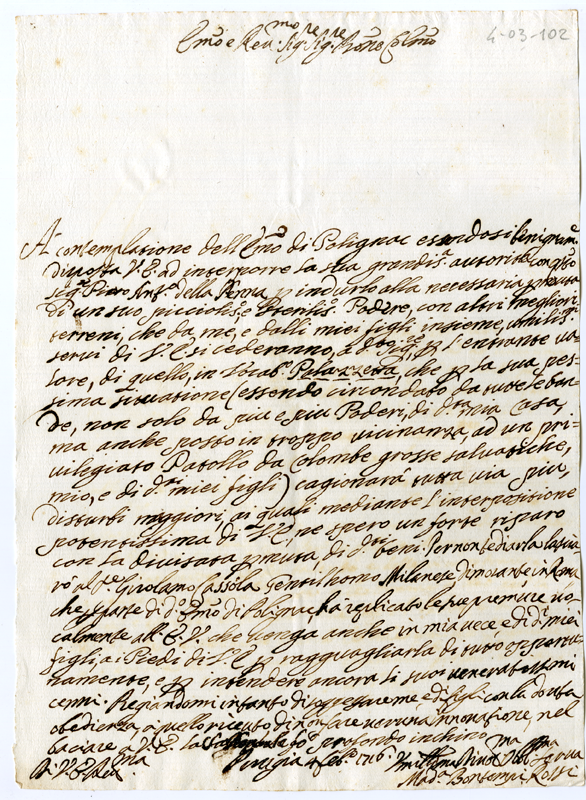 4-03-102
Emo e Rev.mo Sig.re Sig.re Prone Colmo
A contemplatione dell'Emo di Polignac essendosi benignam.
disposta V. E. ad interporre la sua grandis.a autorità con
Sig.r Piero Ant.o della Penna p indurlo alla necessaria permuta
di un suo picciolis.o e sterilis.o Podere, con altri megliori
terreni, che da me, e dalli miei figli insieme, umilis.mi
servi di V. E. si cederanno, p l'entrante va-
lore, di quello, in Vocab.o Palazzetta, che p la sua pes-
sima situatione (essendo circondato da tutte le ban-
de, non solo da piu e piu Poderi, di d.ta mia Casa,
ma anche posto in troppo vicinanza, ad un pri-
vilegiato Patollo da Colombe grosse salvatiche,
mio, e di d.ti miei figli) cagionarà tutta via piu,
disturbi maggiori, a quali mediante l'interpositione
potentissima di V. E., ne spero un forte riparo
con la divisata pmuta, di d.ti beni. Per non tediarla
al S.re Girolamo Cassola Gentilhomo Milanese dimorante in Roma
che p parte di d.o Emo di Polignac, hà replicato le sue premure vo-
calmente all'E. V. che venga anche in mia vece, e di d.ti miei
figli, a i Piedi di V. E. p ragguagliarla di tutto
namente, e p intendere ancora li suoi veneratissimi
cenni. Restandomi intanto di me, e di figli con la dovuta
obedienza a quello ricevuto di non fare veruna innovatione, nel
baciare a V. E. la p.o profondo inchino
Perugia 4 Feb.o 1716
Di V. E. Rev.ma
Umilissima Divot.ma Obl.ma Serva
Mad.a Bontempi Rossi